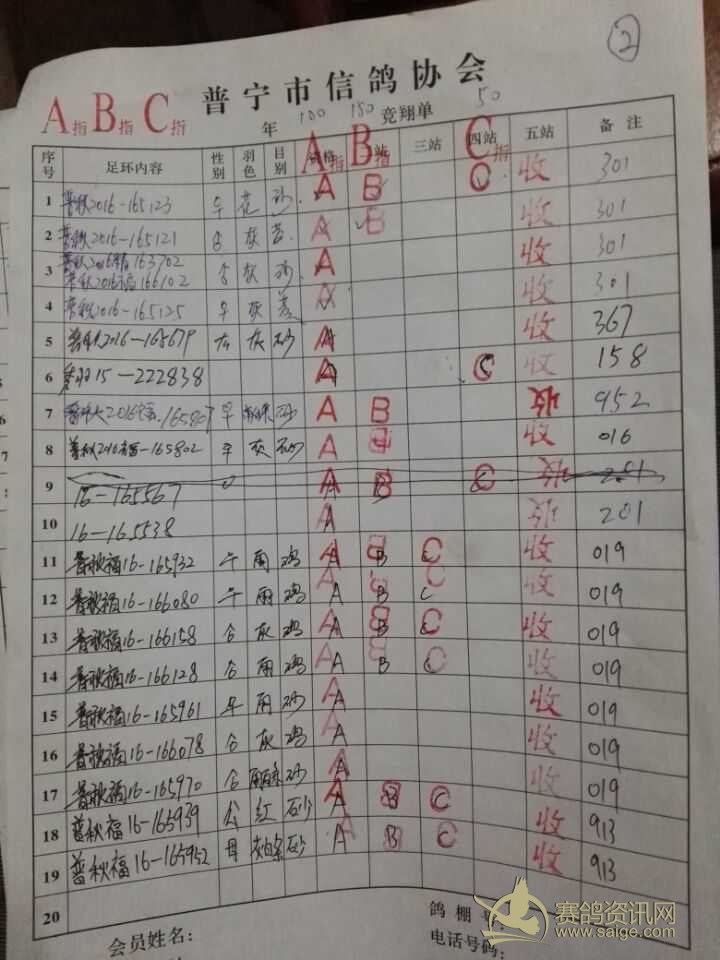 ②
普宁市信鸽协会
A指 B指 C指
年 100 150 竞翔单 50
序号 足环内容 性别 羽色 目别 A指 B指 三站 四站 C指 五站 备注
1 普秋2016-165123 花 砂 A B C 收 301
2 普秋2016-165121 灰 黄 A B 收 301
3 163702 166102 灰 砂 A 收 301
4 普秋2016-165125 灰 黄 A 收 301
5 2016-165679 灰 砂 A 收 367
6 15-222838 A C 收 158
7 2016 165807 砂 A B 收 952
8 普秋2016福-165802 灰 砂 A B 收 016
9 16-165567 A B C 收 201
10 16-165538 A 收 201
11 普秋福16-165932 雨 鸡 A B C 收 019
12 普秋福16-166080 雨 鸡 A B C 收 019
13 普秋福16-166158 灰 鸡 A B C 收 019
14 普秋福16-166128 雨 鸡 A B C 收 019
15 普秋福16-165961 雨 砂 A 收 019
16 普秋福16-166078 灰 鸡 A 收 019
17 普秋福16-165970 砂 A 收 019
18 普秋福16-165939 公 红 砂 A B C 收 913
19 普秋福16-165952 母 砂 A B C 收 913
20
会员姓名：
鸽棚号：
电话号码：
赛鸽资讯网
www.saige.com